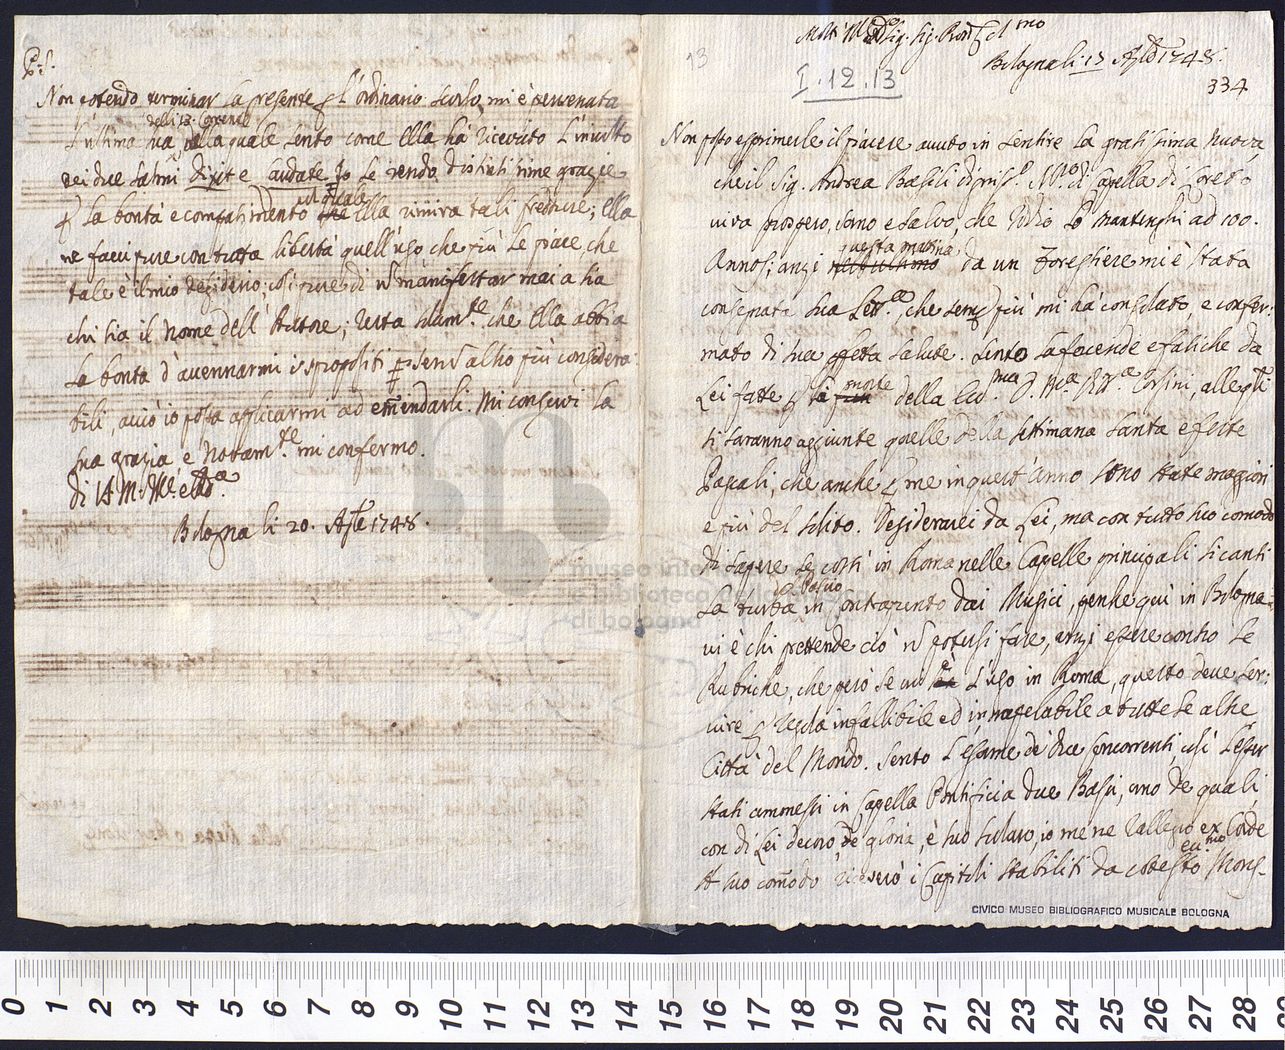 P.S.
Non potendo terminar la presente p l'ordinario scorso, mi è pervenuta
l'ultima sua delli 13. Corrente dalla quale sento come Ella hà ricevuto l'involto
dei due Salmi Dixit e Laudate. Io le rendo distintissime grazie
p la bontà e compatimento col quale Ella rimira tali freddure; Ella
ne facci pure con tutta libertà quell'uso che più le piace, che
tale è il mio desiderio, così pure di n manifestar mai a
chi sia il nome dell'Autore; resta solam.te che Ella abbia
la bontà d'avennarmi i spropositi p esservi altro più considera
bili, acciò io possa applicarmi ad emendarli. Mi conservi la
sua grazia e novam.te mi confermo.
Bologna li 20. Aple 1748.
13
I.12.13
Bologna li 13 Aple 1748.
334
Non posso esprimerle il piacere avuto in sentire la gratissima nuova,
che il Sig. Andrea Basili M.ro di Capella di Loreto
viva prospero, sano e salvo, che Iddio lo mantenghi ad 100.
Annos; anzi questa mattina da un Forestiere mi è stata
consegnata sua Lett.a che sempre più mi hà consolato, e confer-
mato di sua salute. Sento le facende e fatiche da
Lei fatte p la morte della Ecc.ma Corsini, alle qli
si saranno aggiunte quelle della settimana santa e feste
Pascali, che anche p me in quest'anno sono state maggiori
e più del solito. Desiderarei da Lei, ma con tutto suo comodo
di sapere se costì in Roma nelle Capelle principali si canti
la turba in Contrapunto dai Musici, perche quì in Bologna
vi è chi pretende ciò n potersi fare, anzi essere contro le
Rubriche, che però se vi è l'uso in Roma, questo deve ser-
vire p regola infallibile ed innapelabile a tutte le altre
Città del Mondo. Sento l'esame de dieci Concorrenti, così l'esser
stati ammessi in Capella Pontificia due Bassi, uno de quali
con di Lei decoro, e gloria, è suo scolaro, io me ne rallegro ex Corde
A suo comodo riceverò i Capitoli stabiliti da cotesto Mons-
CIVICO MUSEO BIBLIOGRAFICO MUSICALE BOLOGNA
museo
e biblioteca della musica
di bologna
0 1 2 3 4 5 6 7 8 9 10 11 12 13 14 15 16 17 18 19 20 21 22 23 24 25 26 27 28